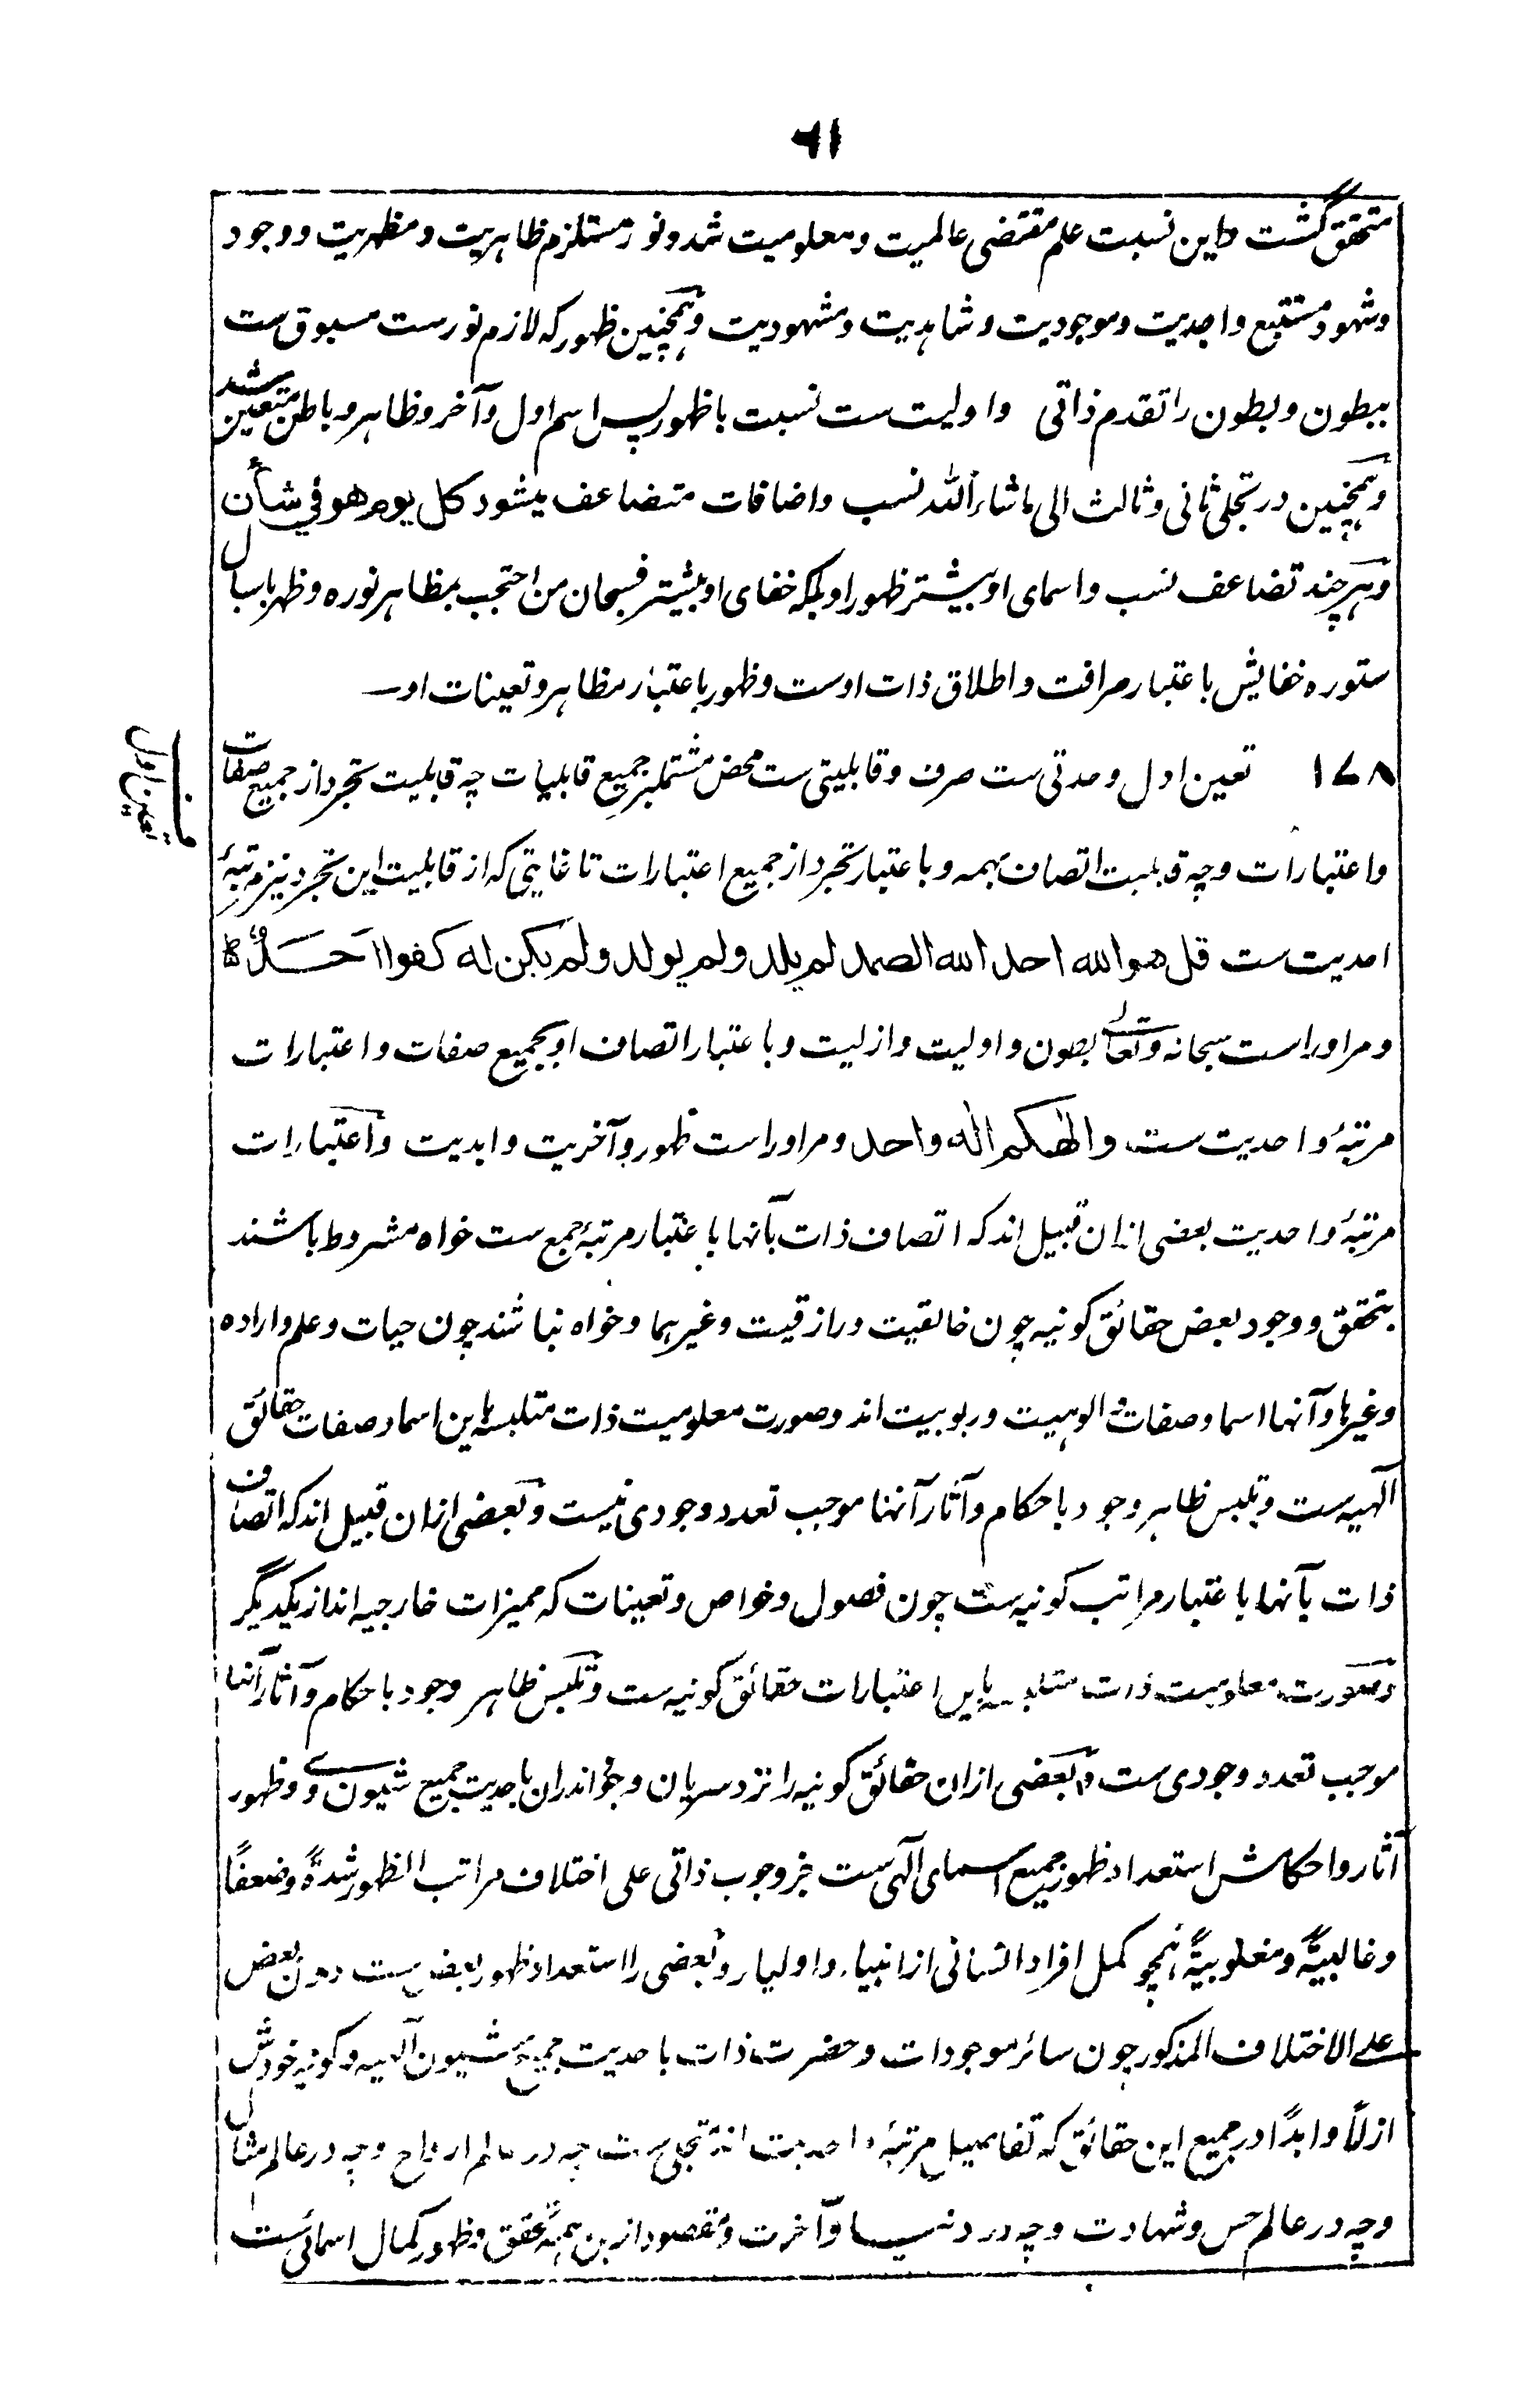 ۶۱
متحقق گشت و این نسبت علم مقتضی عالمیت و معلومیت شد و نور مستلزم ظاهریت و مظهریت و وجود
و شهود مستتبع واجدیت و موجودیت و شاهدیت و مشهودیت و همچنین ظهور که لازم نورست مسبوق ست
ببطون و بطون را تقدم ذاتی و اولیت ست نسبت با ظهور پس اسم اول و آخر و ظاهر و باطن متعین شد
و همچنین در تجلی ثانی و ثالث الی ماشاء الله نسب و اضافات متضاعف میشود کل یوم هو في شأن
و هر چند تضاعف نسب و اسمای او بیشتر ظهور او بلکه خفای او بیشتر فسبحان من احتجب بمظاهر نوره و ظهر باسبال
ستوره خفایش باعتبار صرافت و اطلاق ذات اوست و ظهور باعتبار مظاهر و تعینات او
۱۷۸ تعین اول وحدتی ست صرف و قابلیتی ست محض مشتمل بر جمیع قابلیات چه قابلیت تجرد از جمیع صفات
تعین اول
و اعتبارات و چه قابلیت اتصاف بهمه و باعتبار تجرد از جمیع اعتبارات تا غایتی که از قابلیت این تجرد نیز مرتبهٔ
احدیت ست قل هو الله احد الله الصمد لم یلد ولم یولد ولم یکن له کفوا احد
و مر او راست سبحانه و تعالی بطون و اولیت و ازلیت و باعتبار اتصاف او بجمیع صفات و اعتبارات
مرتبهٔ واحدیت ست والهکم اله واحد و مر او راست ظهور و آخریت و ابدیت و اعتبارات
مرتبهٔ واحدیت بعضی ازان قبیل اند که اتصاف ذات بآنها باعتبار مرتبهٔ جمع ست خواه مشروط باشند
بتحقق و وجود بعض حقائق کونیه چون خالقیت و رازقیت و غیرهما و خواه نباشند چون حیات و علم و اراده
و غیرها و آنها اسما و صفات الوهیت و ربوبیت اند و صورت معلومیت ذات متلبسه باین اسما و صفات حقائق
الهیه ست و تلبس ظاهر وجود با حکام و آثار آنها موجب تعدد وجودی نیست و بعضی ازان قبیل اند که اتصاف
ذات بآنها باعتبار مراتب کونیه ست چون فصول و خواص و تعینات که ممیزات خارجیه اند از یکدیگر
و صورت معلومیت ذات متلبسه باین اعتبارات حقائق کونیه ست و تلبس ظاهر وجود با حکام و آثار آنها
موجب تعدد وجودی ست و بعضی ازان حقائق کونیه را نزد سریان وجود اندران باحدیت جمیع شیون وی و ظهور
آثار و احکامش استعداد ظهور جمیع اسمای الهی ست جز وجوب ذاتی علی اختلاف مراتب الظهور شدةً و ضعفًا
و غالبیةً و مغلوبیةً همچو کمل افراد انسانی از انبیاء و اولیاء و بعضی را استعداد ظهور بعض ست دون بعض
علی الاختلاف المذکور چون سائر موجودات و حضرت ذات باحدیت جمیع شیون الهیه و کونیه خودش
ازلاً و ابداً در جمیع این حقائق که تفاصیل مرتبهٔ واحدیت اند تجلی ست چه در عالم ارواح و چه در عالم مثال
و چه در عالم حس و شهادت و چه در دنیا و آخرت و مقصود ازین همه تحقق و ظهور کمال اسمائی ست